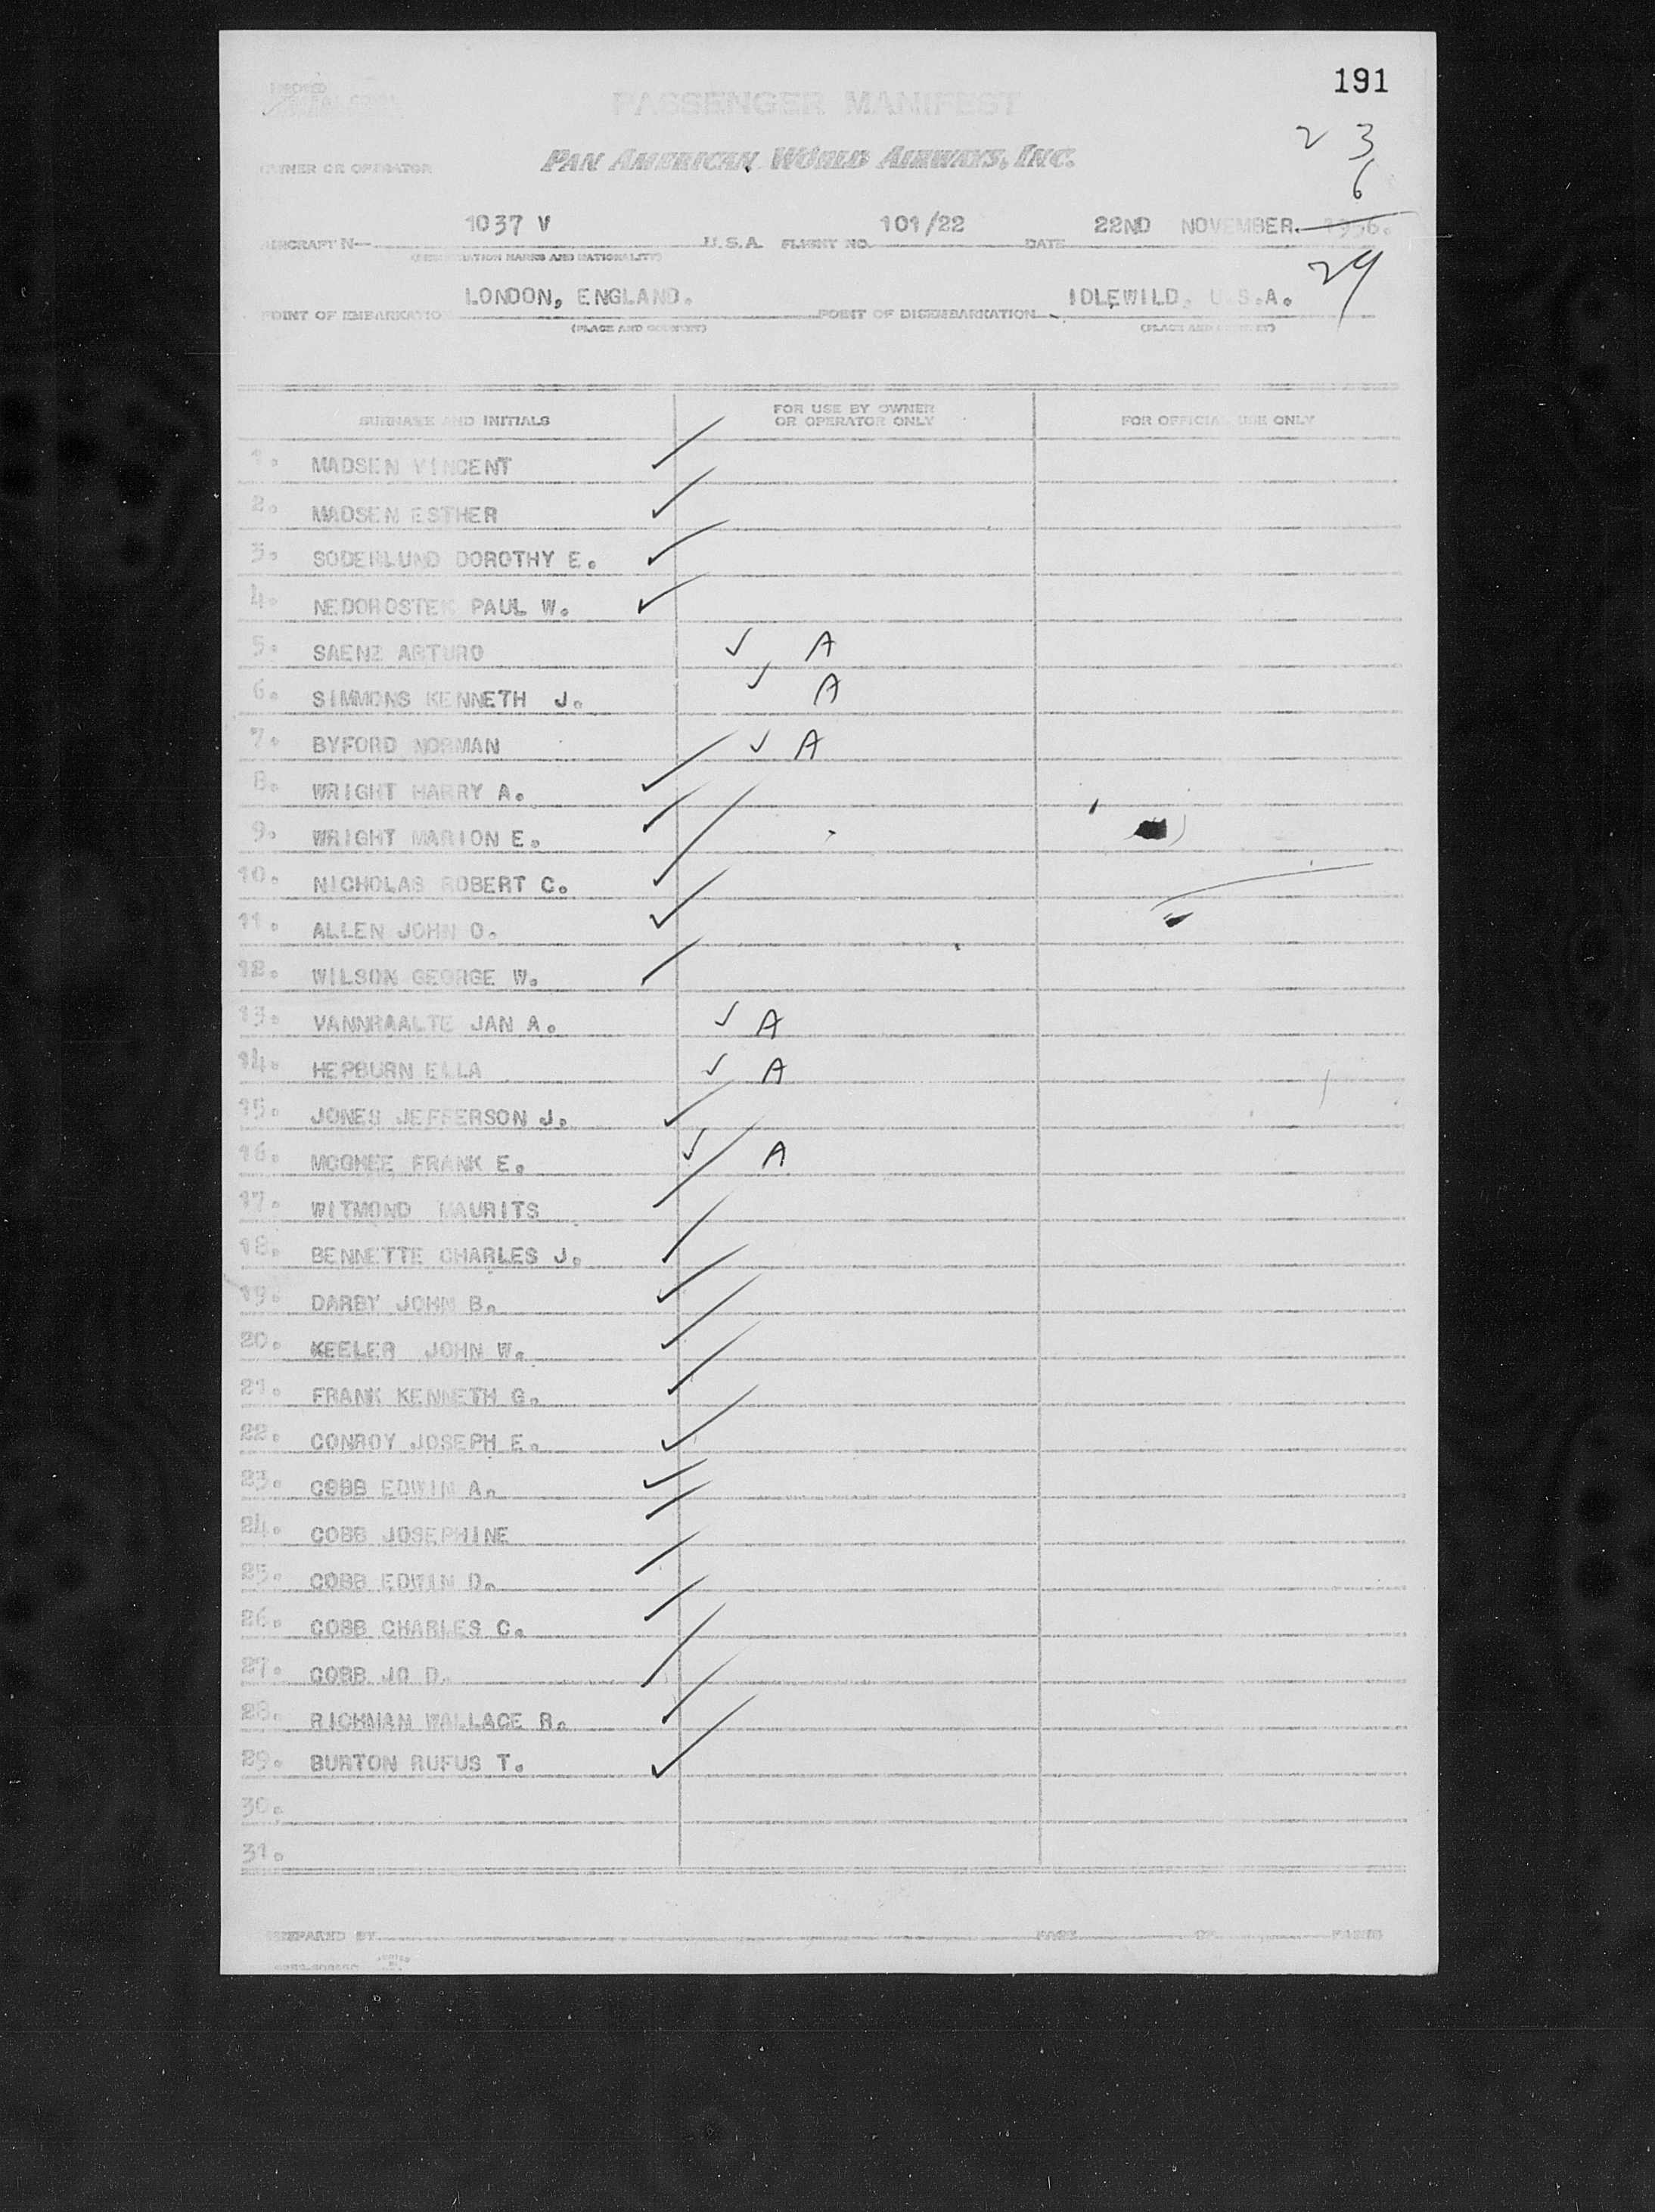 191
PASSENGER MANIFEST
2 3
OWNER OR OPERATOR PAN AMERICAN WORLD AIRWAYS, INC.
6
AIRCRAFT N— 1037 V U.S.A. FLIGHT NO. 101/22 DATE 22ND NOVEMBER. 1956.
(REGISTRATION MARKS AND NATIONALITY)
29
POINT OF EMBARKATION LONDON, ENGLAND. POINT OF DISEMBARKATION IDLEWILD, U.S.A.
(PLACE AND COUNTRY) (PLACE AND COUNTRY)
SURNAME AND INITIALS FOR USE BY OWNER OR OPERATOR ONLY FOR OFFICIAL USE ONLY
1. MADSEN VINCENT
2. MADSEN ESTHER
3. SODERLUND DOROTHY E.
4. NEDOROSTEK PAUL W.
5. SAENZ ARTURO ✓ A
6. SIMMONS KENNETH J. ✓ A
7. BYFORD NORMAN ✓ A
8. WRIGHT HARRY A.
9. WRIGHT MARION E.
10. NICHOLAS ROBERT C.
11. ALLEN JOHN O.
12. WILSON GEORGE W.
13. VANNRAALTE JAN A. ✓ A
14. HEPBURN ELLA ✓ A
15. JONES JEFFERSON J.
16. MCGHEE FRANK E. ✓ A
17. WITMOND MAURITS
18. BENNETTE CHARLES J.
19. DARBY JOHN B.
20. KEELER JOHN W.
21. FRANK KENNETH G.
22. CONROY JOSEPH E.
23. COBB EDWIN A.
24. COBB JOSEPHINE
25. COBB EDWIN D.
26. COBB CHARLES C.
27. COBB JO D.
28. RICHMAN WALLACE R.
29. BURTON RUFUS T.
30.
31.
PREPARED BY PAGE OF PAGES